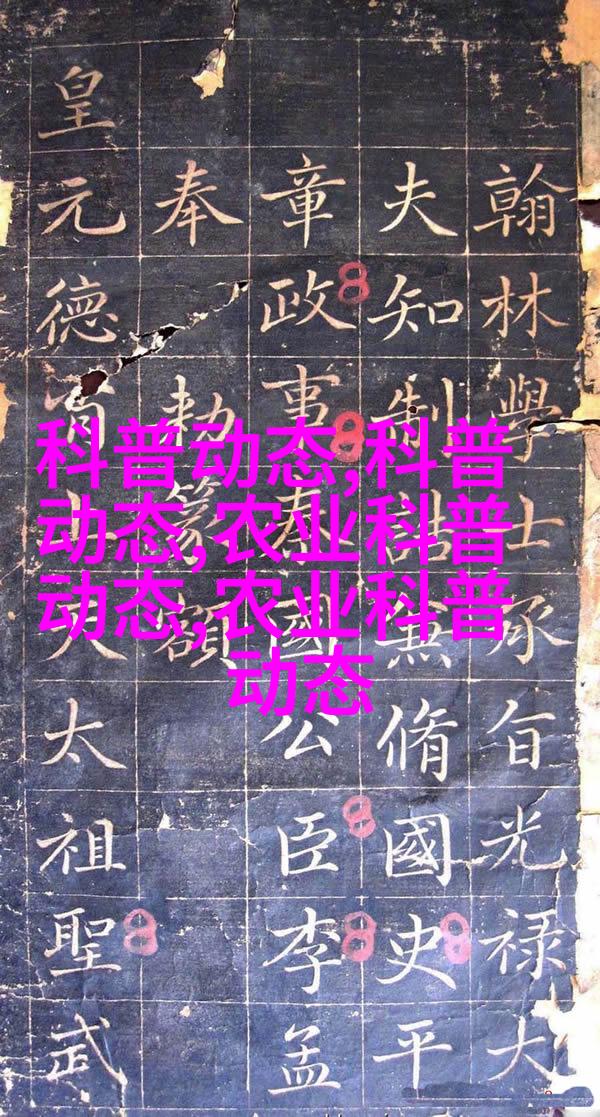 科普动态,科普
动态,农业科普
动态,农业科普
动态
翰林學士承旨光禄大
夫知制誥兼脩國史平
章政事秦國公臣李孟
奉勑篆額
皇元德太祖聖武